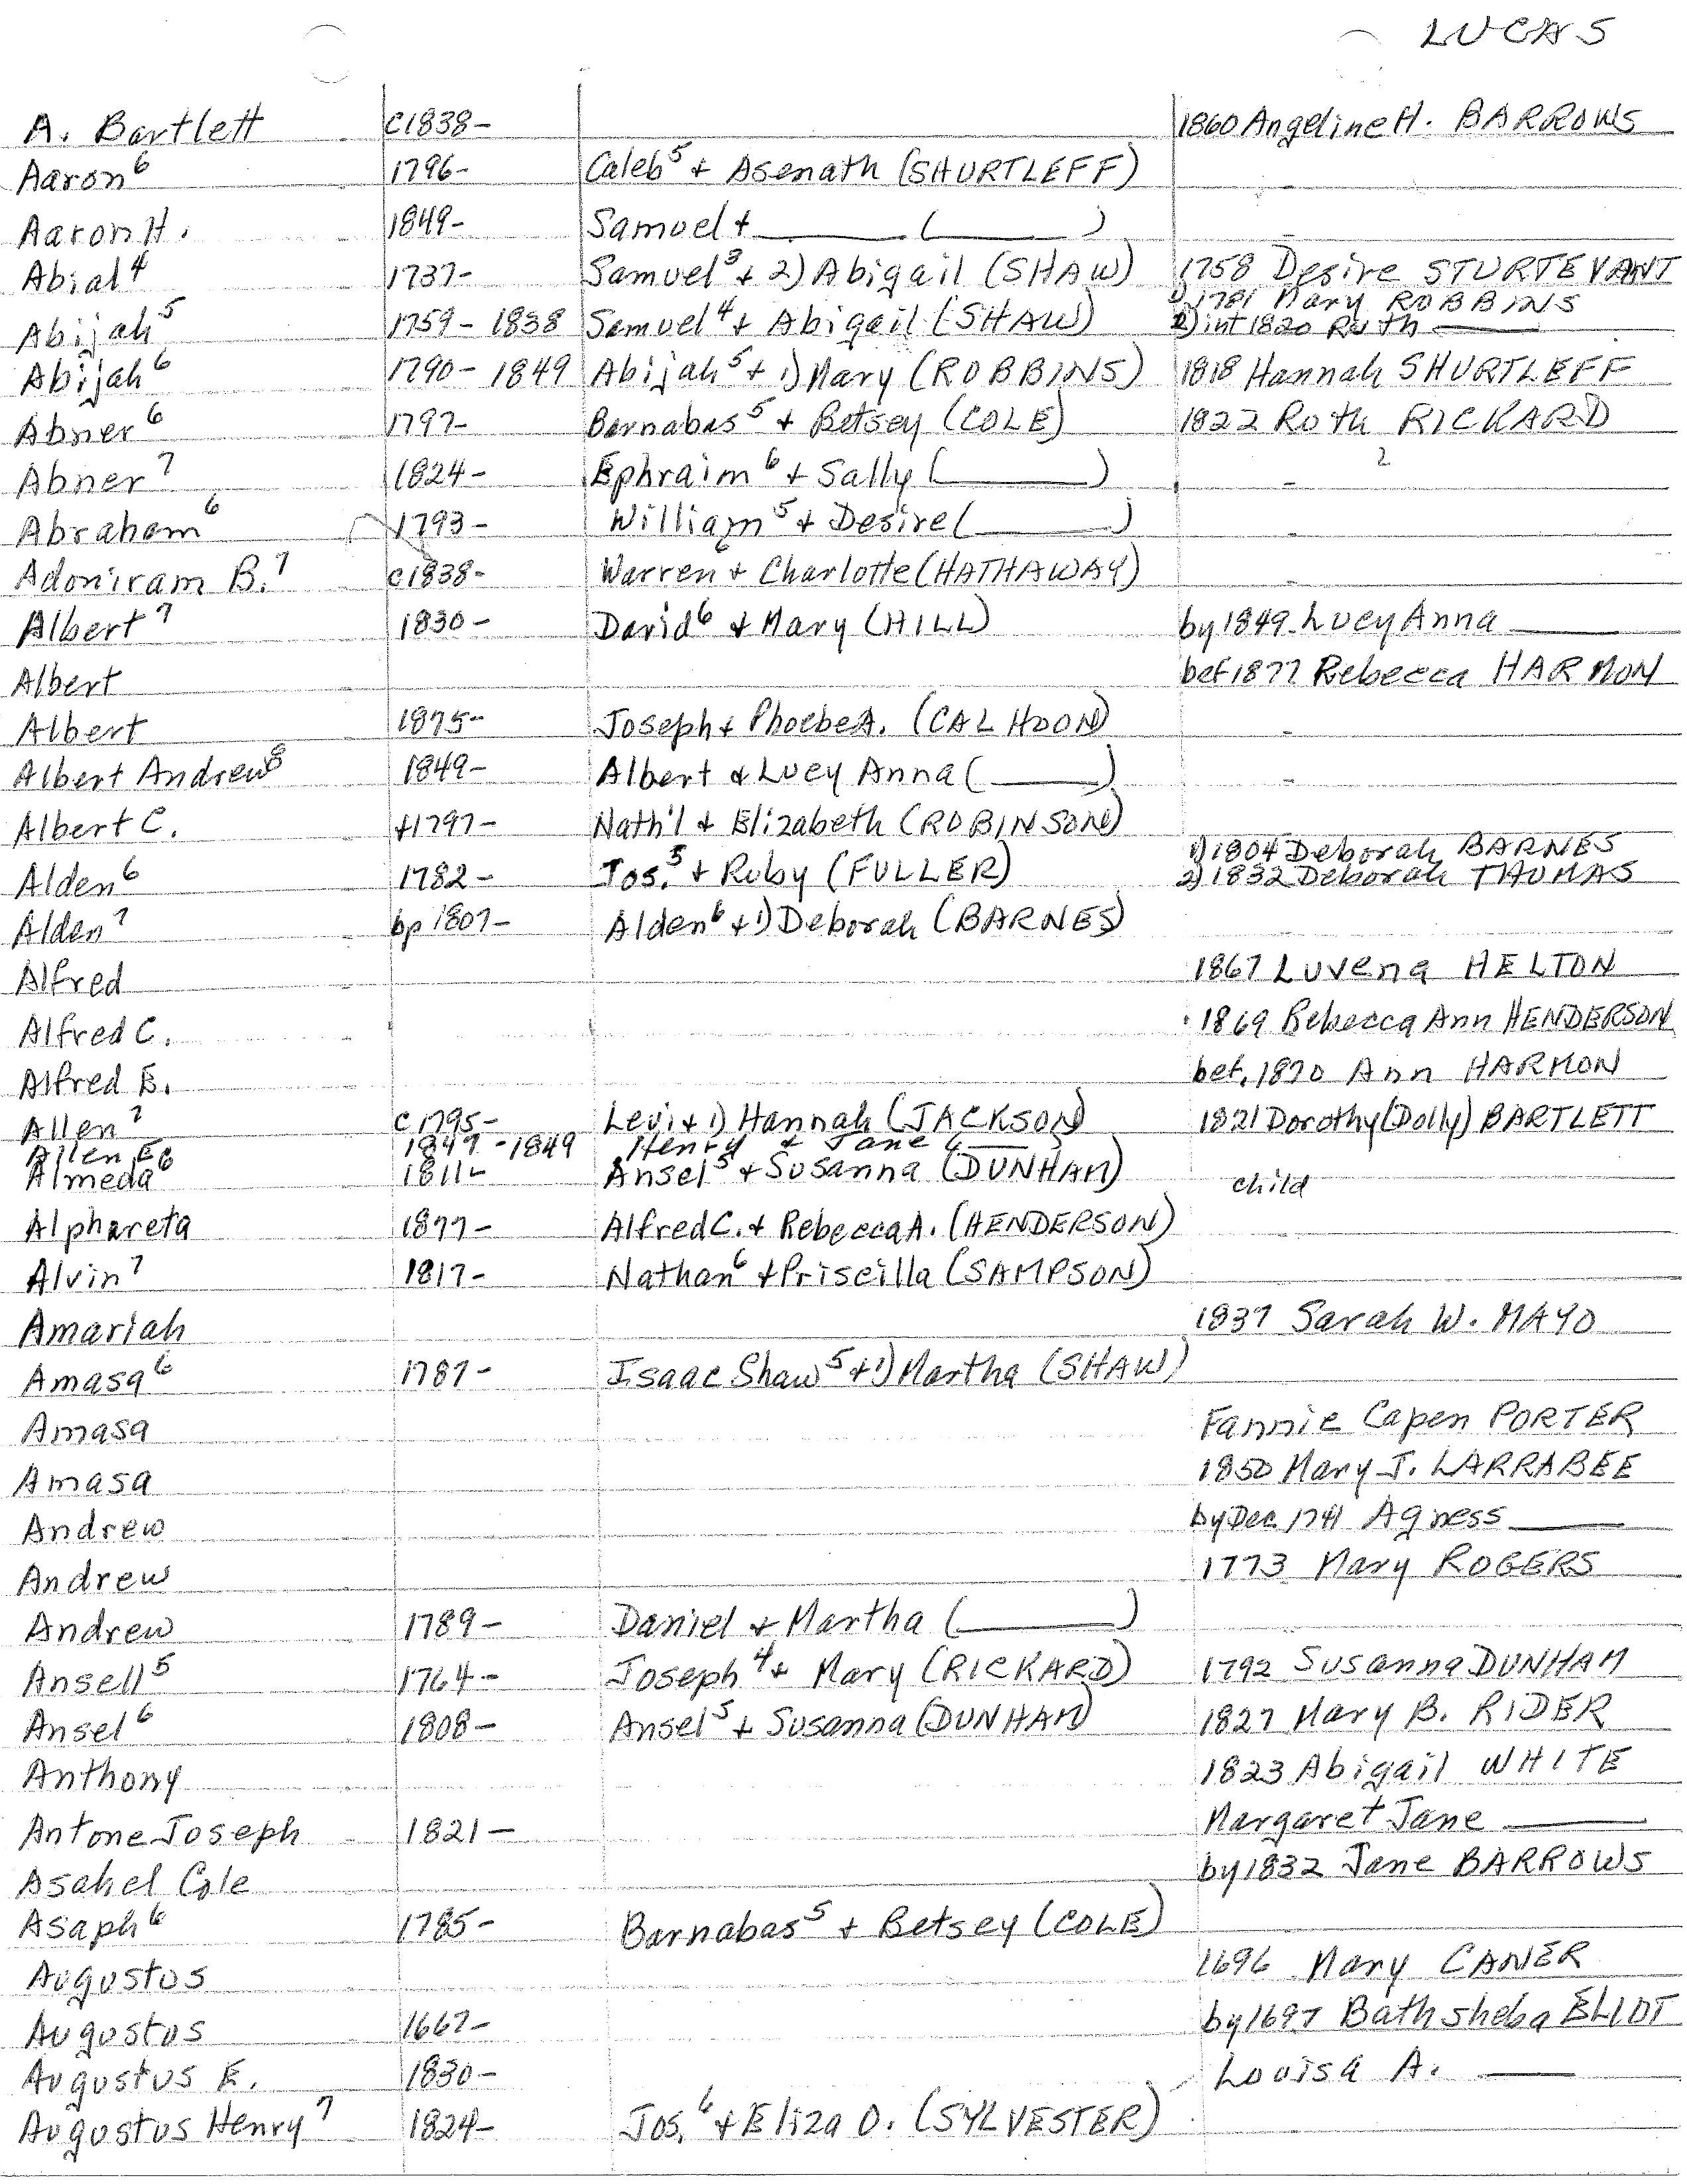 LUCAS
A. Bartlett c1838- 1860 Angeline H. BARROWS
Aaron⁶ 1796- Caleb⁵ + Asenath (SHURTLEFF) -
Aaron H. 1849- Samuel + ____ (____) -
Abial⁴ 1737- Samuel³ + 2) Abigail (SHAW) 1758 Desire STURTEVANT
Abijah⁵ 1759-1838 Samuel⁴ + Abigail (SHAW) 1) 1781 Mary ROBBINS
2) int 1820 Ruth ____
Abijah⁶ 1790-1849 Abijah⁵ + 1) Mary (ROBBINS) 1818 Hannah SHURTLEFF
Abner⁶ 1797- Barnabas⁵ + Betsey (COLE) 1822 Ruth RICKARD
2
Abner⁷ 1824- Ephraim⁶ + Sally (____) -
Abraham⁶ 1793- William⁵ + Desire (____) -
Adoniram B.⁷ c1838- Warren⁶ + Charlotte (HATHAWAY) -
Albert⁷ 1830- David⁶ + Mary (HILL) by 1849 Lucy Anna ____
Albert bef 1877 Rebecca HARMON
Albert 1875- Joseph + Phoebe A. (CALHOON) -
Albert Andrew⁸ 1849- Albert + Lucy Anna (____) -
Albert C. +1797- Nath'l + Elizabeth (ROBINSON)
Alden⁶ 1782- Jos.⁵ + Ruby (FULLER) 1) 1804 Deborah BARNES
2) 1832 Deborah THOMAS
Alden⁷ bp 1807- Alden⁶ + 1) Deborah (BARNES)
Alfred 1867 Luvena HELTON
Alfred C. 1869 Rebecca Ann HENDERSON
Alfred E. bef. 1870 Ann HARMON
Allen⁷ c1795- Levi + 1) Hannah (JACKSON) 1821 Dorothy (Dolly) BARTLETT
Allen E. 1847-1849 Henry & Jane (____
Almeda⁶ 1811- Ansel⁵ + Susanna (DUNHAM) child
Alphareta 1877- Alfred C. + Rebecca A. (HENDERSON)
Alvin⁷ 1817- Nathan⁶ + Priscilla (SAMPSON)
Amariah 1837 Sarah W. MAYO
Amasa⁶ 1787- Isaac Shaw⁵ + 1) Martha (SHAW)
Amasa Fannie Capen PORTER
Amasa 1850 Mary J. LARRABEE
Andrew by Dec 1741 Agness ____
Andrew 1773 Mary ROGERS
Andrew 1789- Daniel + Martha (____)
Ansell⁵ 1764- Joseph⁴ + Mary (RICKARD) 1792 Susanna DUNHAM
Ansel⁶ 1808- Ansel⁵ + Susanna (DUNHAM) 1827 Mary B. RIDER
Anthony 1823 Abigail WHITE
Antone Joseph 1821- Margaret Jane ____
Asahel Cole by 1832 Jane BARROWS
Asaph⁶ 1785- Barnabas⁵ + Betsey (COLE)
Augustus 1696 Mary CANER
Augustus 1667- by 1697 Bathsheba ELIOT
Augustus E. 1830- Louisa A. ____
Augustus Henry⁷ 1824- Jos.⁶ + Eliza O. (SYLVESTER)